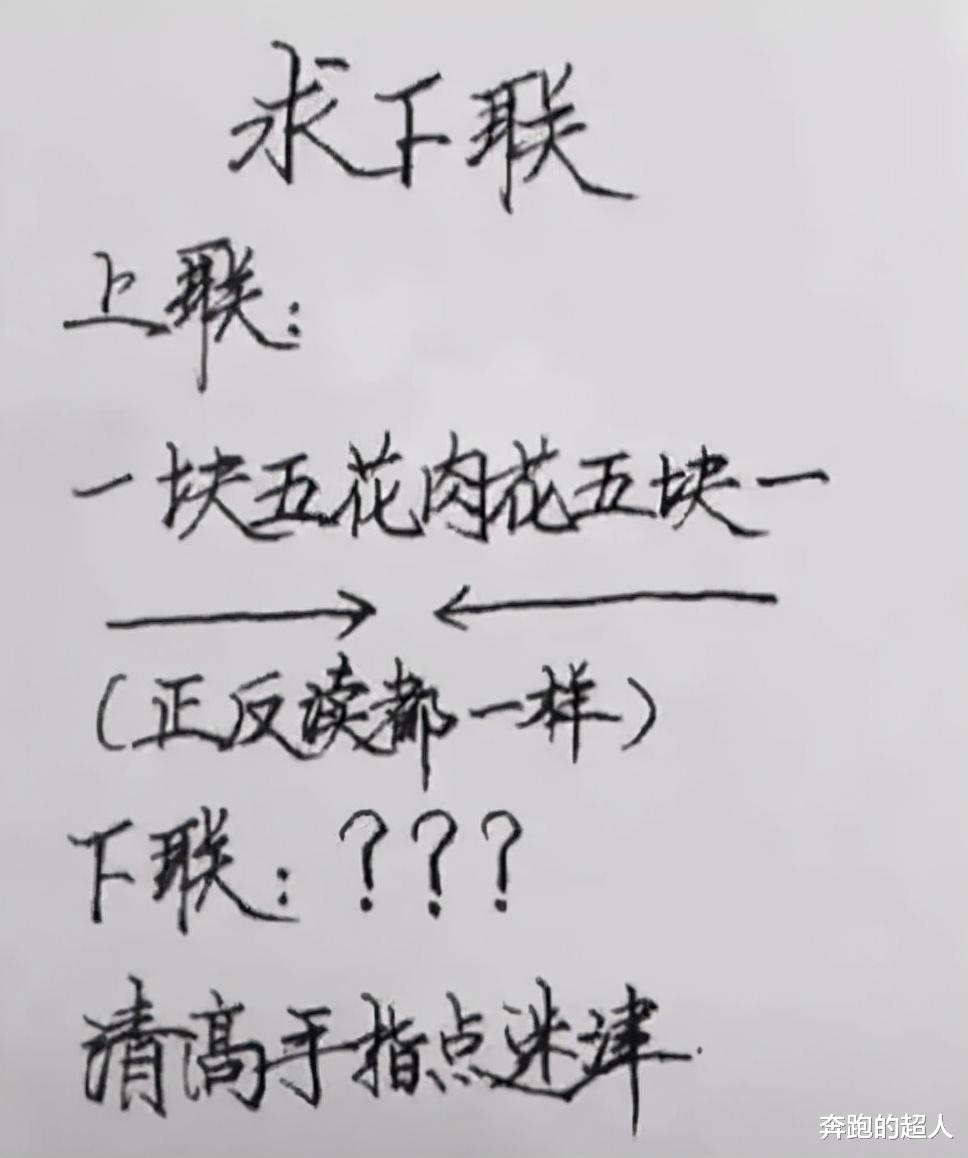 求下联
上联：
一块五花肉花五块一
（正反读都一样）
下联：？？？
请高手指点迷津.
奔跑的超人